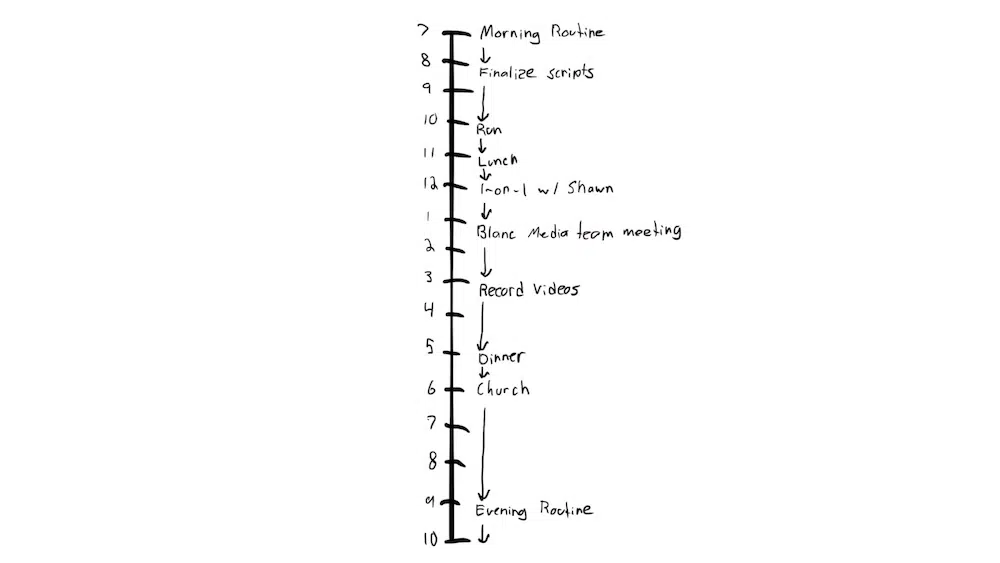 7 Morning Routine
8
Finalize scripts
9
10
Run
11
Lunch
12 1-on-1 w/ Shawn
1
Blanc Media team meeting
2
3
Record Videos
4
5
Dinner
6 Church
7
8
9
Evening Routine
10